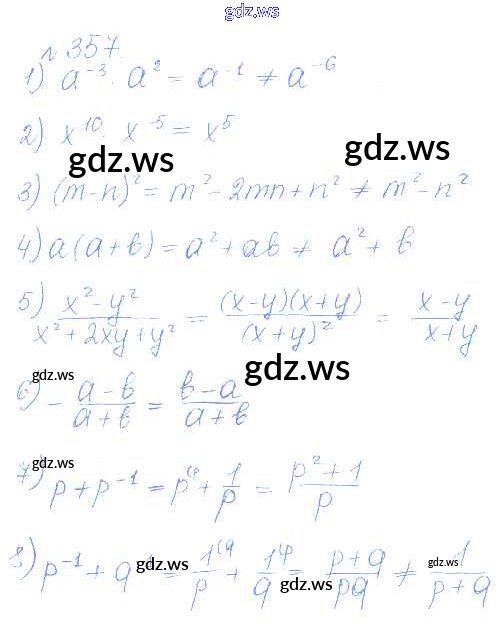 gdz.ws
№ 357.
1) a⁻³ · a² = a⁻¹ ≠ a⁻⁶
2) x¹⁰ · x⁻⁵ = x⁵
gdz.ws
gdz.ws
3) (m-n)² = m² - 2mn + n² ≠ m² - n²
4) a(a+b) = a² + ab ≠ a² + b
5) (x² - y²)/(x² + 2xy + y²) = ((x-y)(x+y))/((x+y)²) = (x-y)/(x+y)
gdz.ws
gdz.ws
6) -(a-b)/(a+b) = (b-a)/(a+b)
gdz.ws
7) p + p⁻¹ = p⁽ᵖ + 1/p = (p² + 1)/p
8) p⁻¹ + q = 1⁽q/p + 1⁽p/q = (p+q)/(pq) ≠ 1/(p+q)
gdz.ws
gdz.ws
gdz.ws